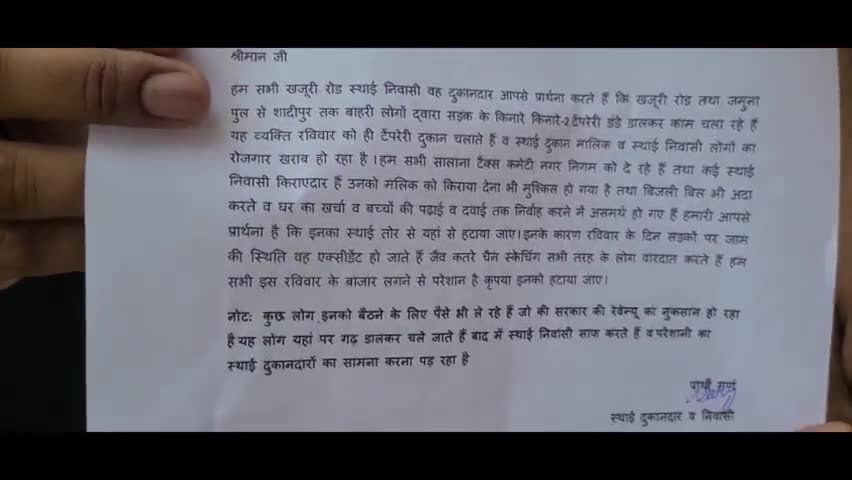 श्रीमान जी
हम सभी खजूरी रोड स्थाई निवासी वह दुकानदार आपसे प्रार्थना करते हैं कि खजूरी रोड तथा जमुना
पुल से शादीपुर तक बाहरी लोगों द्वारा सड़क के किनारे किनारे-2 टेंपरेरी डंडे डालकर काम चला रहे हैं
यह व्यक्ति रविवार को ही टेंपरेरी दुकान चलाते हैं व स्थाई दुकान मालिक व स्थाई निवासी लोगों का
रोजगार खराब हो रहा है।हम सभी सालाना टैक्स कमेटी नगर निगम को दे रहे हैं तथा कई स्थाई
निवासी किराएदार हैं उनको मलिक को किराया देना भी मुश्किल हो गया है तथा बिजली बिल भी अदा
करते व घर का खर्चा व बच्चों की पढ़ाई व दवाई तक निर्वाह करने में असमर्थ हो गए हैं हमारी आपसे
प्रार्थना है कि इनका स्थाई तोर से यहां से हटाया जाए।इनके कारण रविवार के दिन सड़कों पर जाम
की स्थिति वह एक्सीडेंट हो जाते हैं जैव कतरे चैन स्केचिंग सभी तरह के लोग वारदात करते हैं हम
सभी इस रविवार के बाजार लगने से परेशान है कृपया इनको हटाया जाए।
नोट: कुछ लोग इनको बैठने के लिए पैसे भी ले रहे हैं जो की सरकार की रेवेन्यू का नुकसान हो रहा
है यह लोग यहां पर गढ़ डालकर चले जाते हैं बाद में स्थाई निवासी साफ करते हैं व परेशानी का
स्थाई दुकानदारों का सामना करना पड़ रहा है
स्थाई दुकानदार व निवासी